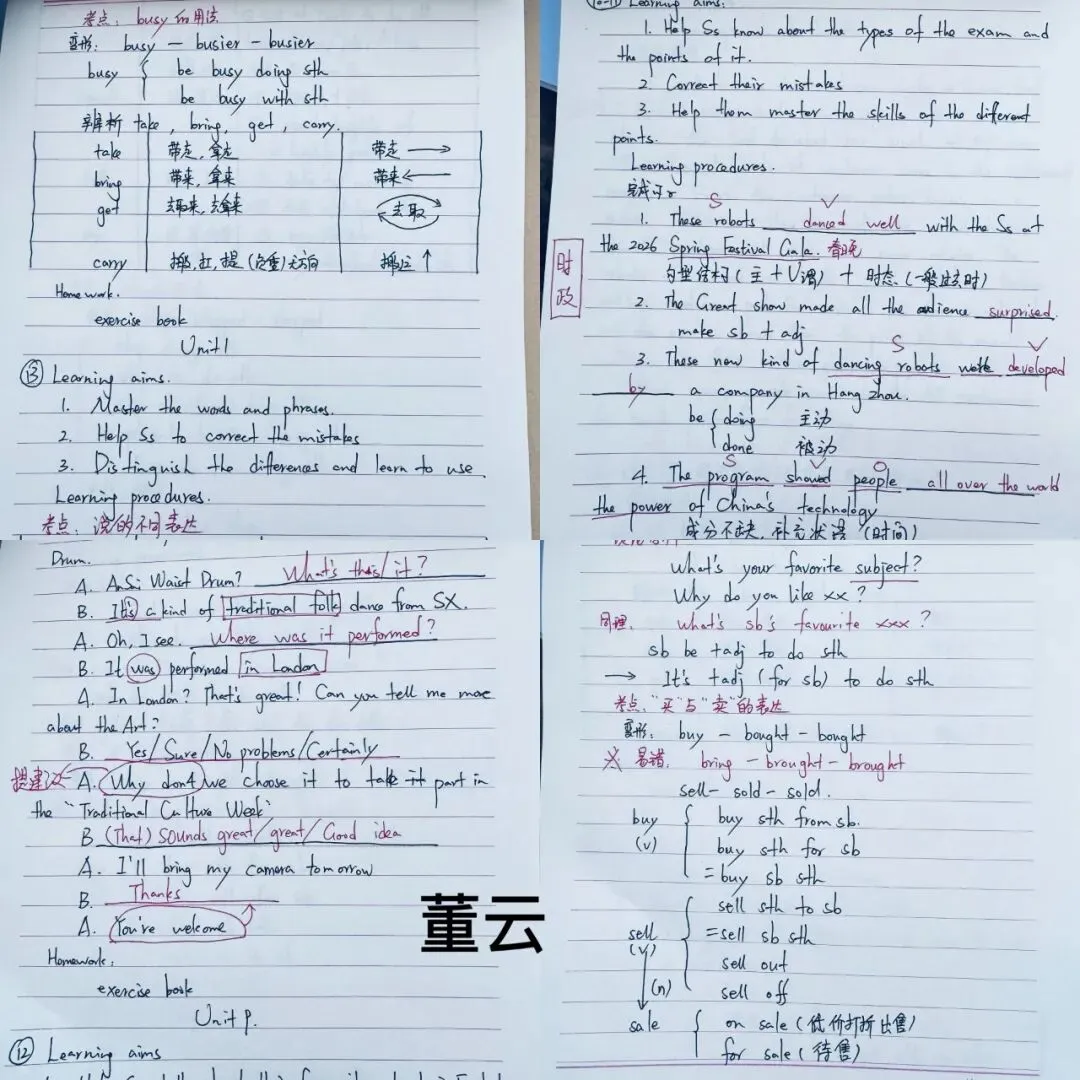 考点: busy的用法
变形: busy — busier - busier
busy { be busy doing sth
be busy with sth
辨析 take, bring, get, carry.
take 带走, 拿走 带走 →
bring 带来, 拿来 带来 ←
get 去取来, 去拿来 去取
carry 挪, 扛, 提 (负重) 无方向 挪运 ↑
Homework.
exercise book
Unit 1
⑬ Learning aims.
1. Master the words and phrases.
2. Help Ss to correct the mistakes
3. Distinguish the differences and learn to use
Learning procedures.
考点: 说的不同表达
Learning aims:
1. Help Ss know about the types of the exam and
the points of it.
2. Correct their mistakes
3. Help them master the skills of the different
points.
Learning procedures.
S V
1. These robots danced well with the Ss at
the 2026 Spring Festival Gala. 春晚
时政
句型结构 (主 + V谓) + 时态 (一般过去时)
2. The Great show made all the audience surprised.
make sb + adj
S V
3. These new kind of dancing robots were developed
by a company in Hang Zhou.
be { doing 主动
done 被动
S V O
4. The program showed people all over the world
the power of China's technology
成分不缺, 补充状语 (时间)
Drum.
A. AnSi Waist Drum? What's this/it?
B. It's a kind of traditional folk dance from SX.
A. Oh, I see. Where was it performed?
B. It was performed in London
A. In London? That's great! Can you tell me more
about the Art?
B. Yes/Sure/No problems/Certainly
提建议 A. Why don't we choose it to take it part in
the "Traditional Culture Week"
B (That) sounds great/great/Good idea
A. I'll bring my camera tomorrow
B. Thanks
A. You're welcome
Homework:
exercise book
Unit 9.
⑫ Learning aims
董云
What's your favorite subject?
Why do you like xx?
同理: What's sb's favourite xxx?
sb be +adj to do sth
→ It's +adj (for sb) to do sth
考点: "买"与"卖"的表达
变形: buy - bought - bought
※ 易错: bring - brought - brought
sell - sold - sold.
buy (v) { buy sth from sb.
buy sth for sb
= buy sb sth
sell (v) { sell sth to sb
= sell sb sth
sell out
sell off
(n)
sale { on sale (低价打折出售)
for sale (待售)